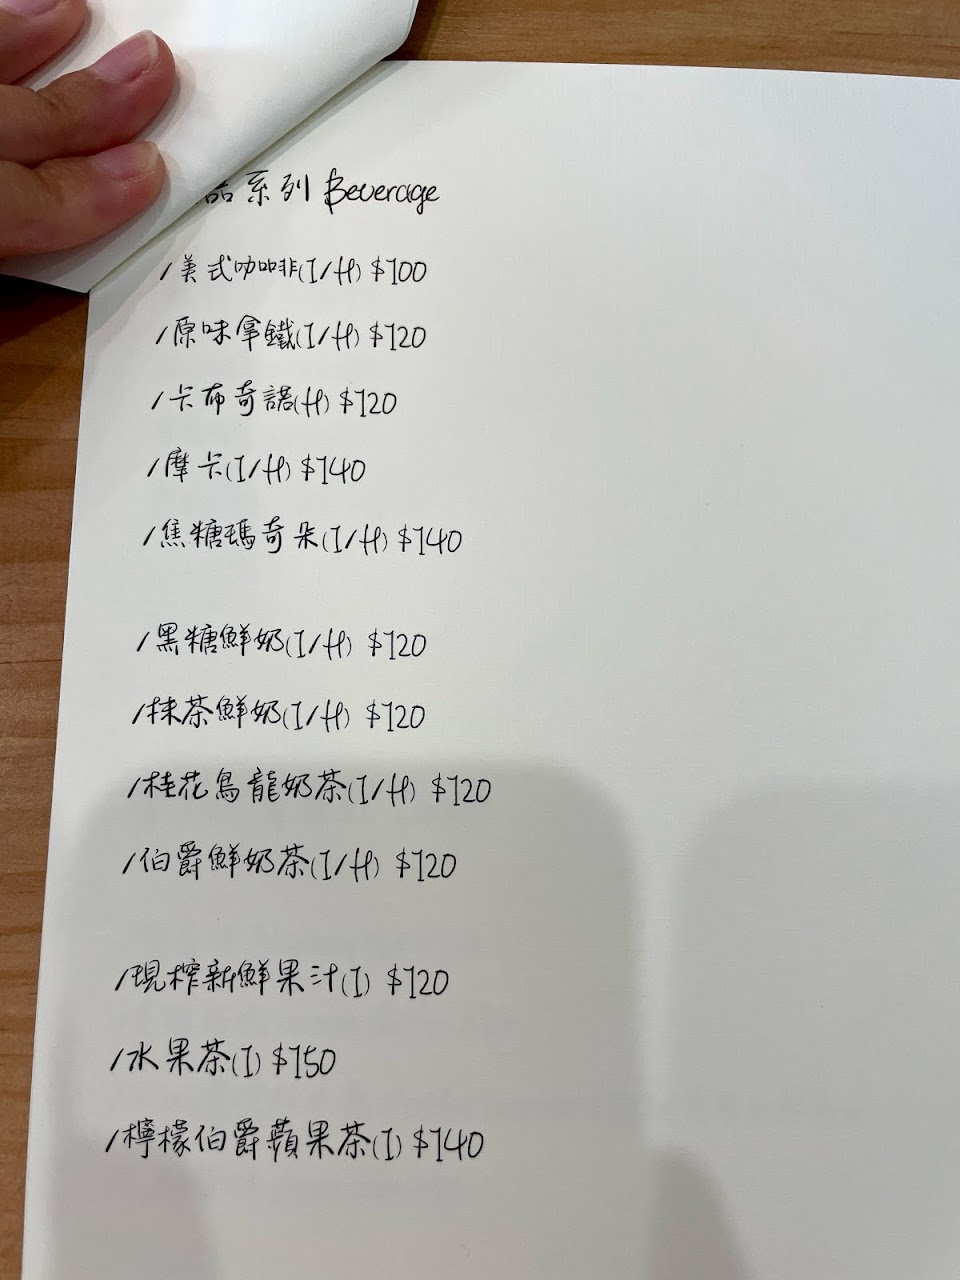 品系列 Beverage
/美式咖啡(I/H) $100
/原味拿鐵(I/H) $120
/卡布奇諾(H) $120
/摩卡(I/H) $140
/焦糖瑪奇朵(I/H) $140
/黑糖鮮奶(I/H) $120
/抹茶鮮奶(I/H) $120
/桂花烏龍奶茶(I/H) $120
/伯爵鮮奶茶(I/H) $120
/現榨新鮮果汁(I) $120
/水果茶(I) $150
/檸檬伯爵蘋果茶(I) $140